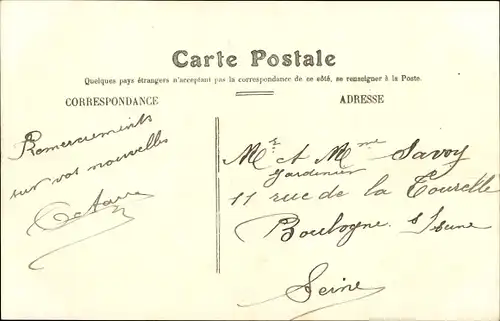 Carte Postale
Quelques pays étrangers n'acceptant pas la correspondance de ce côté, se renseigner à la Poste.
CORRESPONDANCE
Remerciements
sur vos nouvelles
Octave
ADRESSE
Mr et Mme Savoy
Jardinier
11 rue de la Tourelle
Boulogne s/Seine
Seine